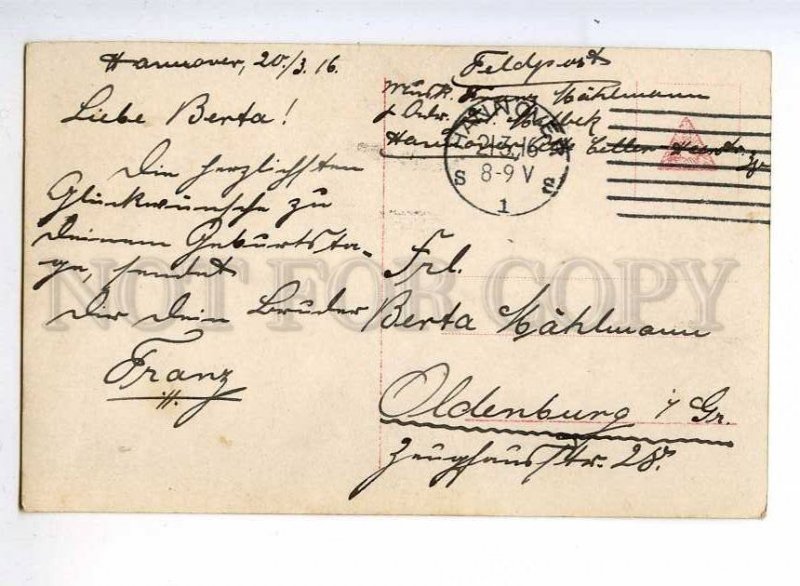 Hannover, 20./3. 16.
Liebe Berta!
Die herzlichsten
Glückwünsche zu
Deinem Geburtsta-
ge, sendet
Dir Dein Bruder
Franz
Feldpost
Musk. Franz Mählmann
Hannover Celler Heerstr.
HANNOVER
21.3.16
8-9 V
S S
1
Frl.
Berta Mählmann
Oldenburg i/Gr.
Zeughausstr. 28.
NOT FOR COPY